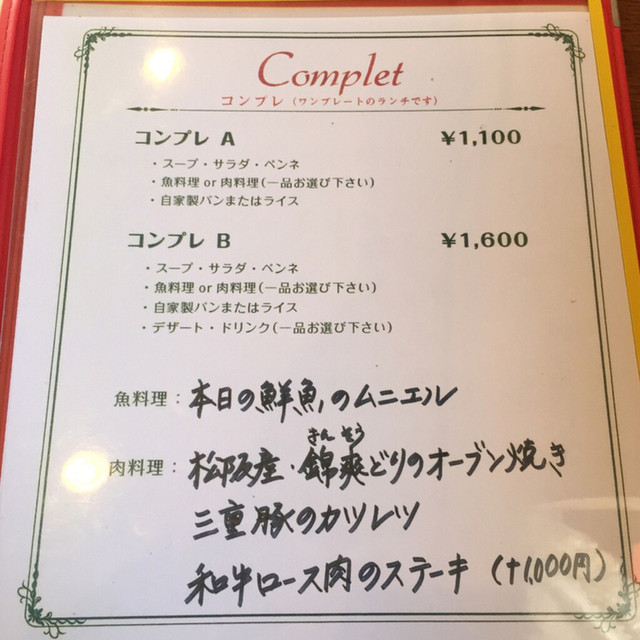 Complet
コンプレ（ワンプレートのランチです）
コンプレ A ¥1,100
・スープ・サラダ・ペンネ
・魚料理 or 肉料理（一品お選び下さい）
・自家製パンまたはライス
コンプレ B ¥1,600
・スープ・サラダ・ペンネ
・魚料理 or 肉料理（一品お選び下さい）
・自家製パンまたはライス
・デザート・ドリンク（一品お選び下さい）
魚料理：本日の鮮魚のムニエル
きんそう
肉料理：松阪産・錦爽どりのオーブン焼き
三重豚のカツレツ
和牛ロース肉のステーキ（+1,000円）